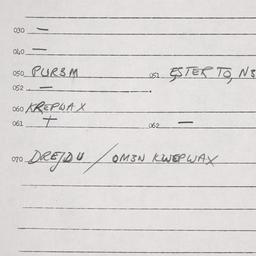 030 —
040 —
050 PURSM 051 ESTER TO, NS
052 —
060 KREPWAX
061 + 062 —
070 DREJDU / OMSN KWEPWAX